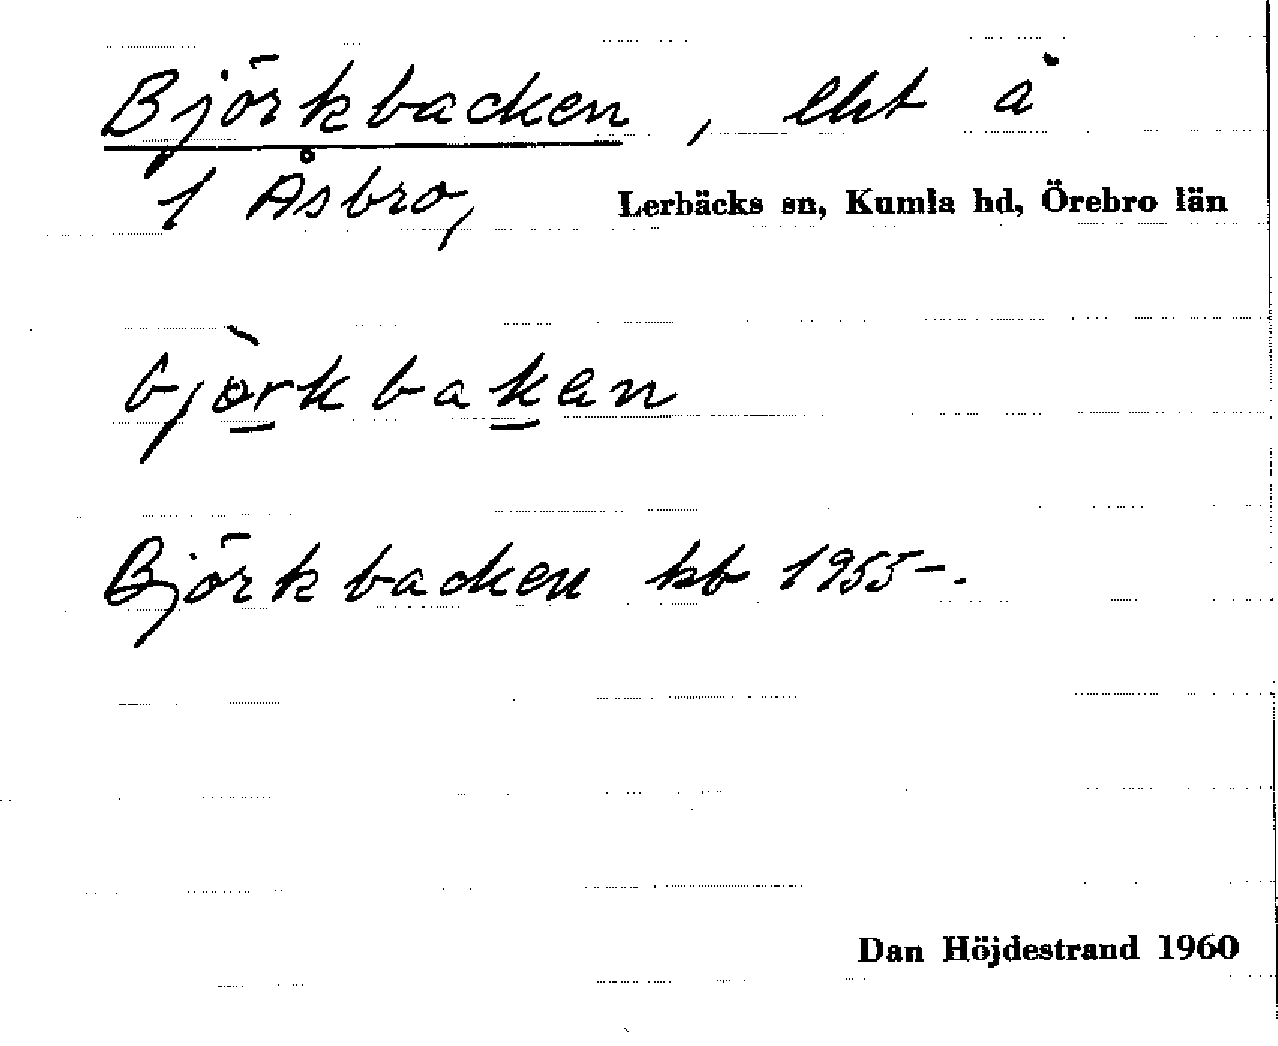 Björkbacken, lht å
1 Åsbro, Lerbäcks sn, Kumla hd, Örebro län
bjòrkbakan
Björkbacken kb 1955-.
Dan Höjdestrand 1960